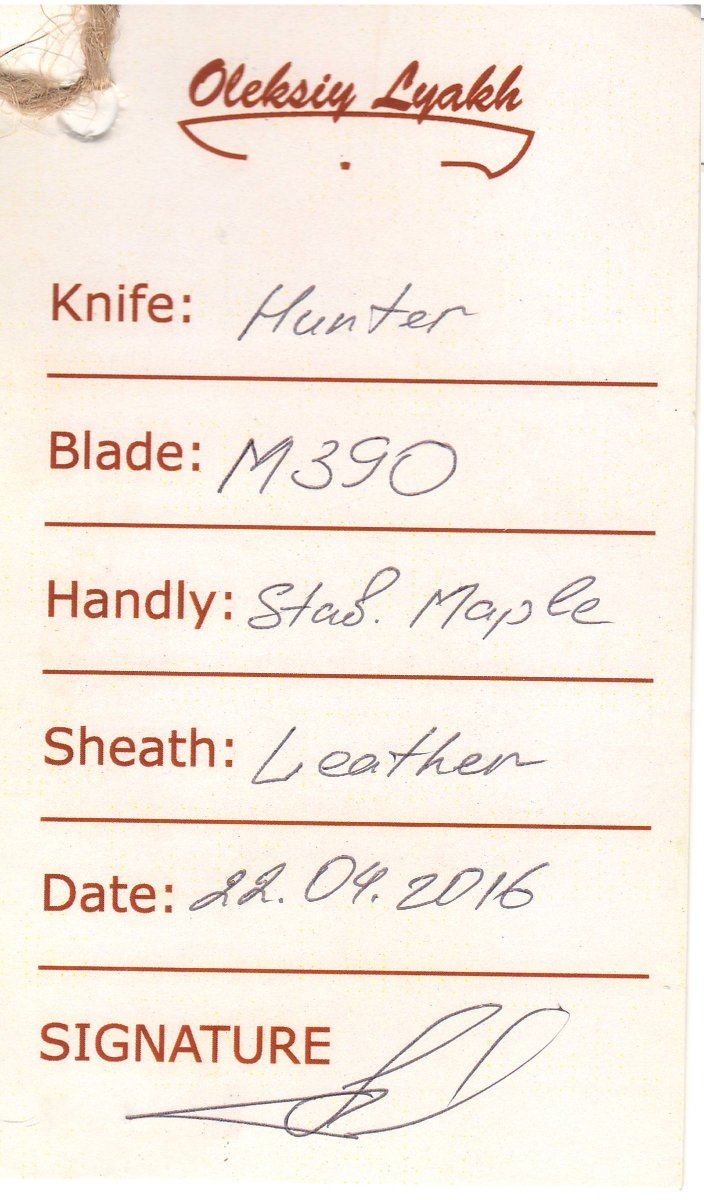 Oleksiy Lyakh
Knife: Hunter
Blade: M390
Handly: Stab. Maple
Sheath: Leather
Date: 22.04.2016
SIGNATURE